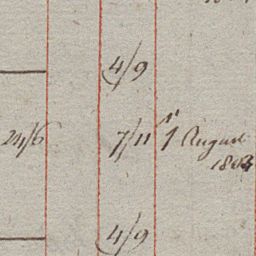 4/9
24/6 7/11 1 August
1803
4/9